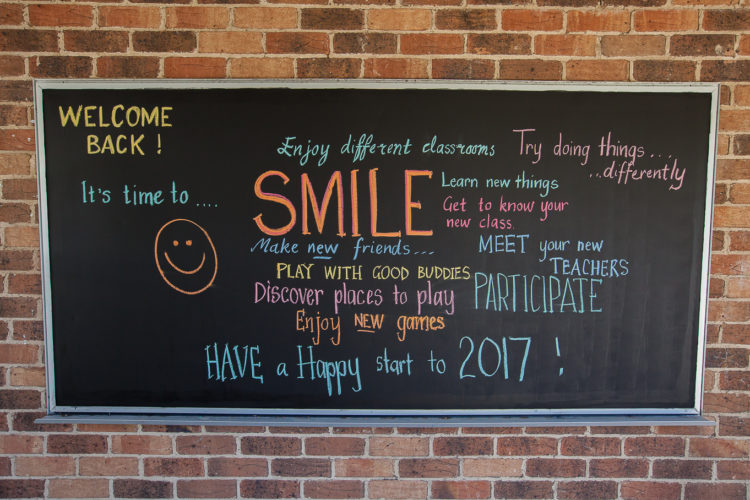 WELCOME
BACK !
It's time to ....
Enjoy different classrooms
Try doing things...
...differently
SMILE
Learn new things
Get to know your
new class.
Make new friends...
MEET your new
TEACHERS
PLAY WITH GOOD BUDDIES
Discover places to play
PARTICIPATE
Enjoy NEW games
HAVE a Happy start to 2017 !